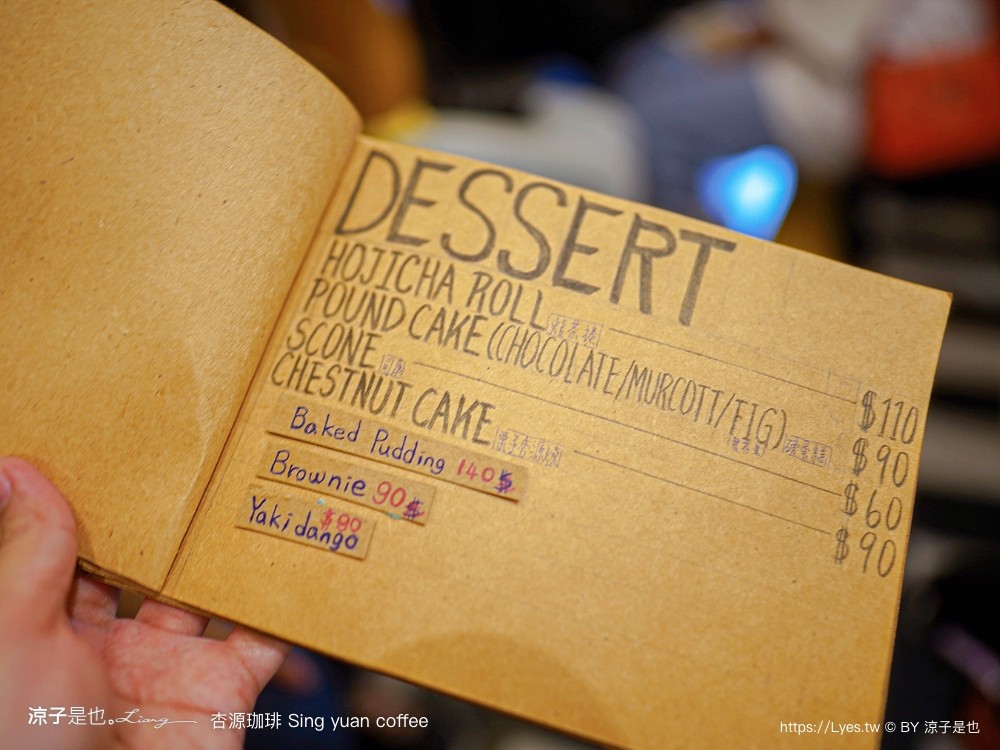 DESSERT
HOJICHA ROLL $110
POUND CAKE (CHOCOLATE/MURCOTT/FIG) $90
SCONE 司康 $60
CHESTNUT CAKE $90
Baked Pudding 140$
Brownie 90$
Yaki dango $90
涼子是也。Liang 杏源珈琲 Sing yuan coffee
https://Lyes.tw © BY 涼子是也